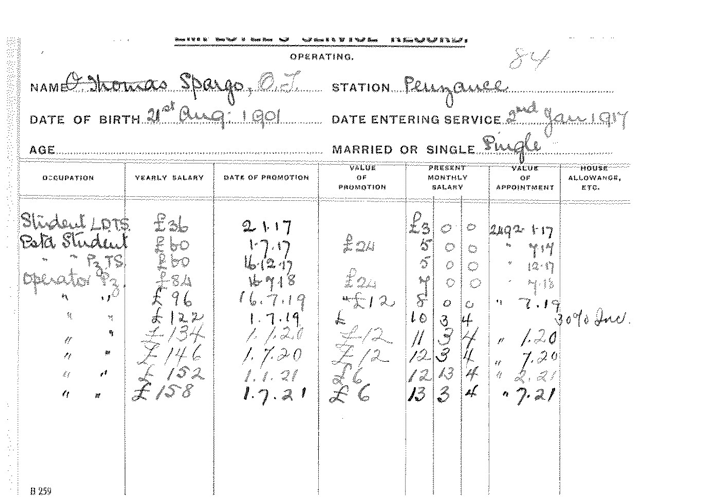 EMPLOYEE'S SERVICE RECORD.
OPERATING.
84
NAME O Thomas Spargo, O.T. STATION Penzance
DATE OF BIRTH 21st Aug: 1901 DATE ENTERING SERVICE 2nd Jan 1917
AGE MARRIED OR SINGLE Single
OCCUPATION YEARLY SALARY DATE OF PROMOTION VALUE OF PROMOTION PRESENT MONTHLY SALARY VALUE OF APPOINTMENT HOUSE ALLOWANCE, ETC.
Student L.D.T.S. £36 2 1.17 £3 0 0 2492 1.17
Pstd Student £60 1.7.17 £24 5 0 0 " 7.17
" " Pz T.S. £60 16.12.17 5 0 0 " 12.17
Operator Pz. £84 16.7.18 £24 7 0 0 " 7.18
" " £96 16.7.19 "£12 8 0 0 " 7.19
" " £122 1.7.19 £ 10 3 4 30% Inc.
" " £134 1.1.20 £12 11 3 4 " 1.20
" " £146 1.7.20 £12 12 3 4 " 7.20
" " £152 1.1.21 £6 12 13 4 " 2.21
" " £158 1.7.21 £6 13 3 4 " 7.21
B 259